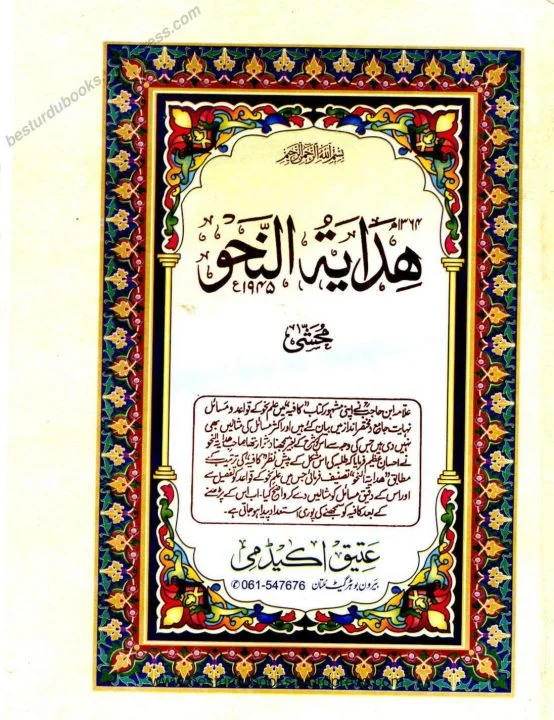 besturdubooks.wordpress.com
بسم اللہ الرحمن الرحیم
۱۳۶۴ھ
ھدایۃ النحو
۱۹۴۵ء
محشّٰی
علامہ ابن حاجبؒ نے اپنی مشہور کتاب "کافیہ" میں علم نحو کے قواعد و مسائل
نہایت جامع و مختصر انداز میں بیان کئے ہیں اور اکثر مسائل کی مثالیں بھی
نہیں دی ہیں جس کی وجہ سے اس کی شرح کے بغیر سمجھنا دشوار تھا صاحب ھدایۃ النحو
نے احسان عظیم فرمایا کہ طلبہ کی اس مشکل کے پیش نظر "کافیہ" کی ترتیب کے
مطابق "ھدایۃ النحو" تصنیف فرمائی جس میں علم نحو کے قواعد کو تفصیل سے
اور اس کے دقیق مسائل کو مثالیں دے کر واضح کیا۔ اب اس کے پڑھنے
کے بعد کافیہ کو سمجھنے کی پوری استعداد پیدا ہو جاتی ہے۔
عتیق اکیڈمی
بیرون بوہڑ گیٹ ملتان 061-547676 ✆